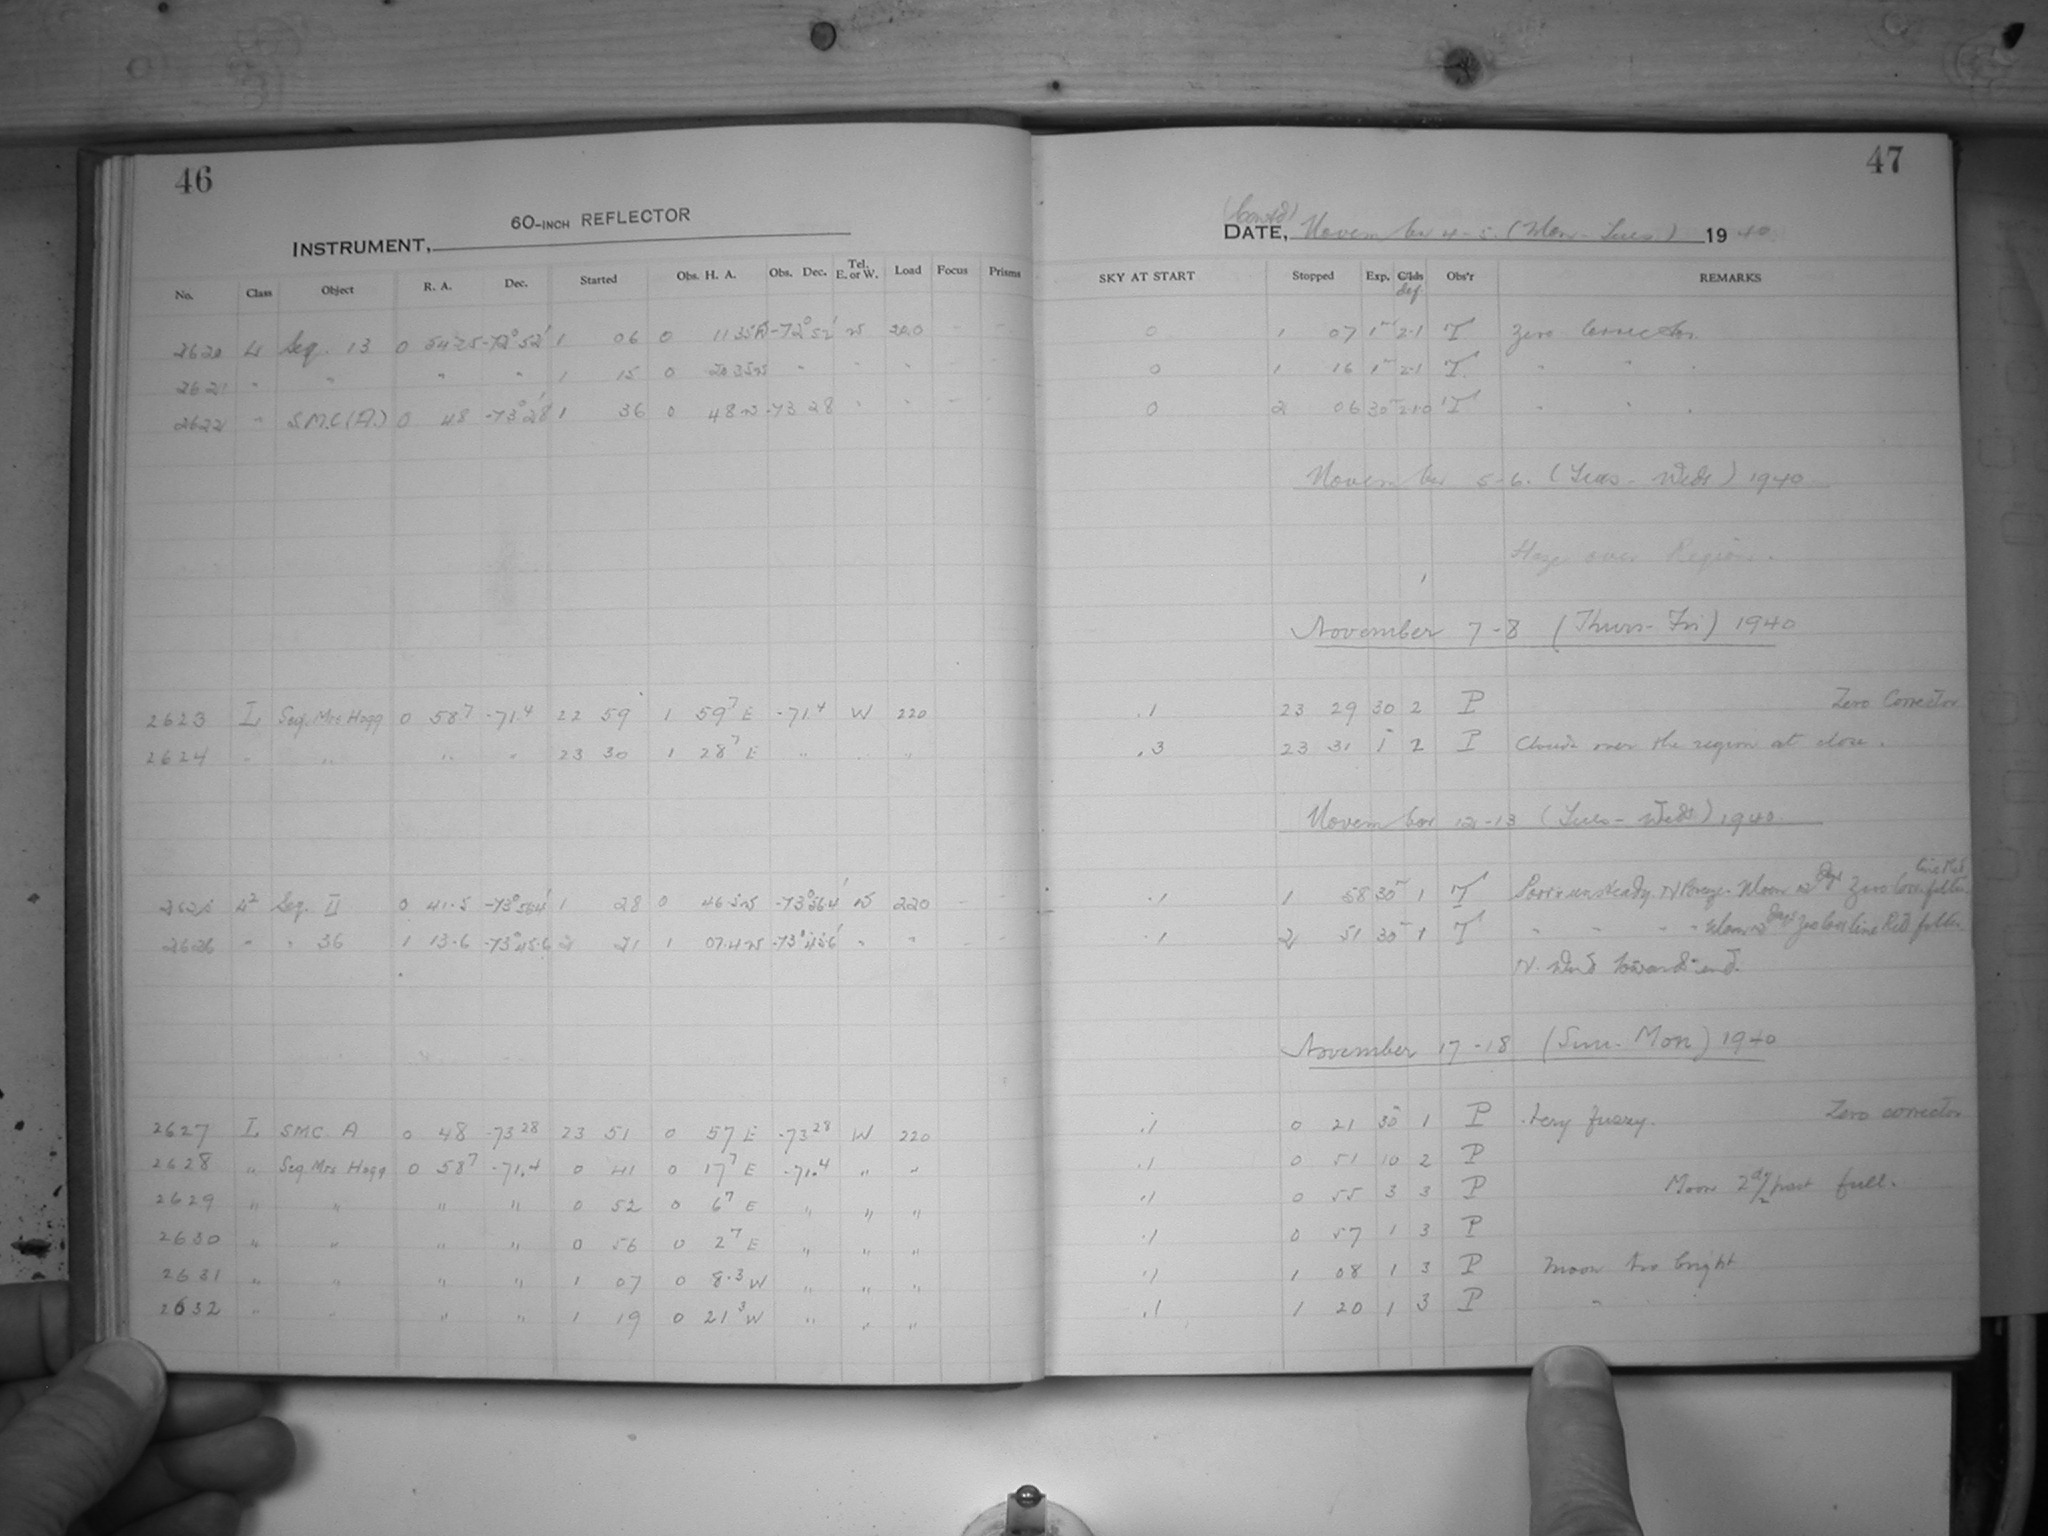 46
60-INCH REFLECTOR
INSTRUMENT,
No. Class Object R. A. Dec. Started Obs. H. A. Obs. Dec. Tel. E. or W. Load Focus Prisms
2620 Seq. 13 0 54.25 -72° 52' 1 06 0 -72° 52' W 220
2621 " " " " 1 15 0 " " "
2622 " S.M.C (A.) 0 48 -73° 28' 1 36 0 48 W -73 28 " "
2623 L Seq. Mrs Hogg 0 58⁷ -71.4 22 59 1 59⁷ E -71.4 W 220
2624 " " " " 23 30 1 28⁷ E " " "
2625 Seq. II 0 41.5 -73° 56.4' 1 28 0 46.5 W -73° 56.4' W 220
2626 " " 36 1 13.6 -73° 45.6 2 21 1 07.4 W -73° 45.6' " "
2627 L SMC A 0 48 -73 28 23 51 0 57 E -73 28 W 220
2628 " Seq Mrs Hogg 0 58⁷ -71.4 0 41 0 17⁷ E -71.4 " "
2629 " " " " 0 52 0 6⁷ E " " "
2630 " " " " 0 56 0 2⁷ E " " "
2631 " " " " 1 07 0 8.3 W " " "
2632 " " " " 1 19 0 21³ W " " "
47
(Contd)
DATE, November 4-5. (Mon-Tues.) 1940
SKY AT START Stopped Exp. C'lds def. Obs'r REMARKS
0 1 07 1ᵐ 2-1 T Zero Corrector.
0 1 16 1ᵐ 2-1 T " " "
0 2 06 30ᵐ T " " "
November 5-6. (Tues - Weds) 1940
Haze over Region.
November 7-8 (Thurs-Fri) 1940
.1 23 29 30 2 P Zero Corrector
.3 23 31 1 2 P Clouds over the region at close.
November 12-13 (Tues - Weds) 1940
.1 1 58 30ᵐ 1 T unsteady. N Breeze. Moon
.1 2 51 30ᵐ 1 T " " " " Moon Red filter
N. Wind towards end.
November 17-18 (Sun-Mon) 1940
.1 0 21 30 1 P Very fuzzy. Zero corrector
.1 0 51 10 2 P
.1 0 55 3 3 P Moon 2 past full.
.1 0 57 1 3 P
.1 1 08 1 3 P Moon too bright
.1 1 20 1 3 P "